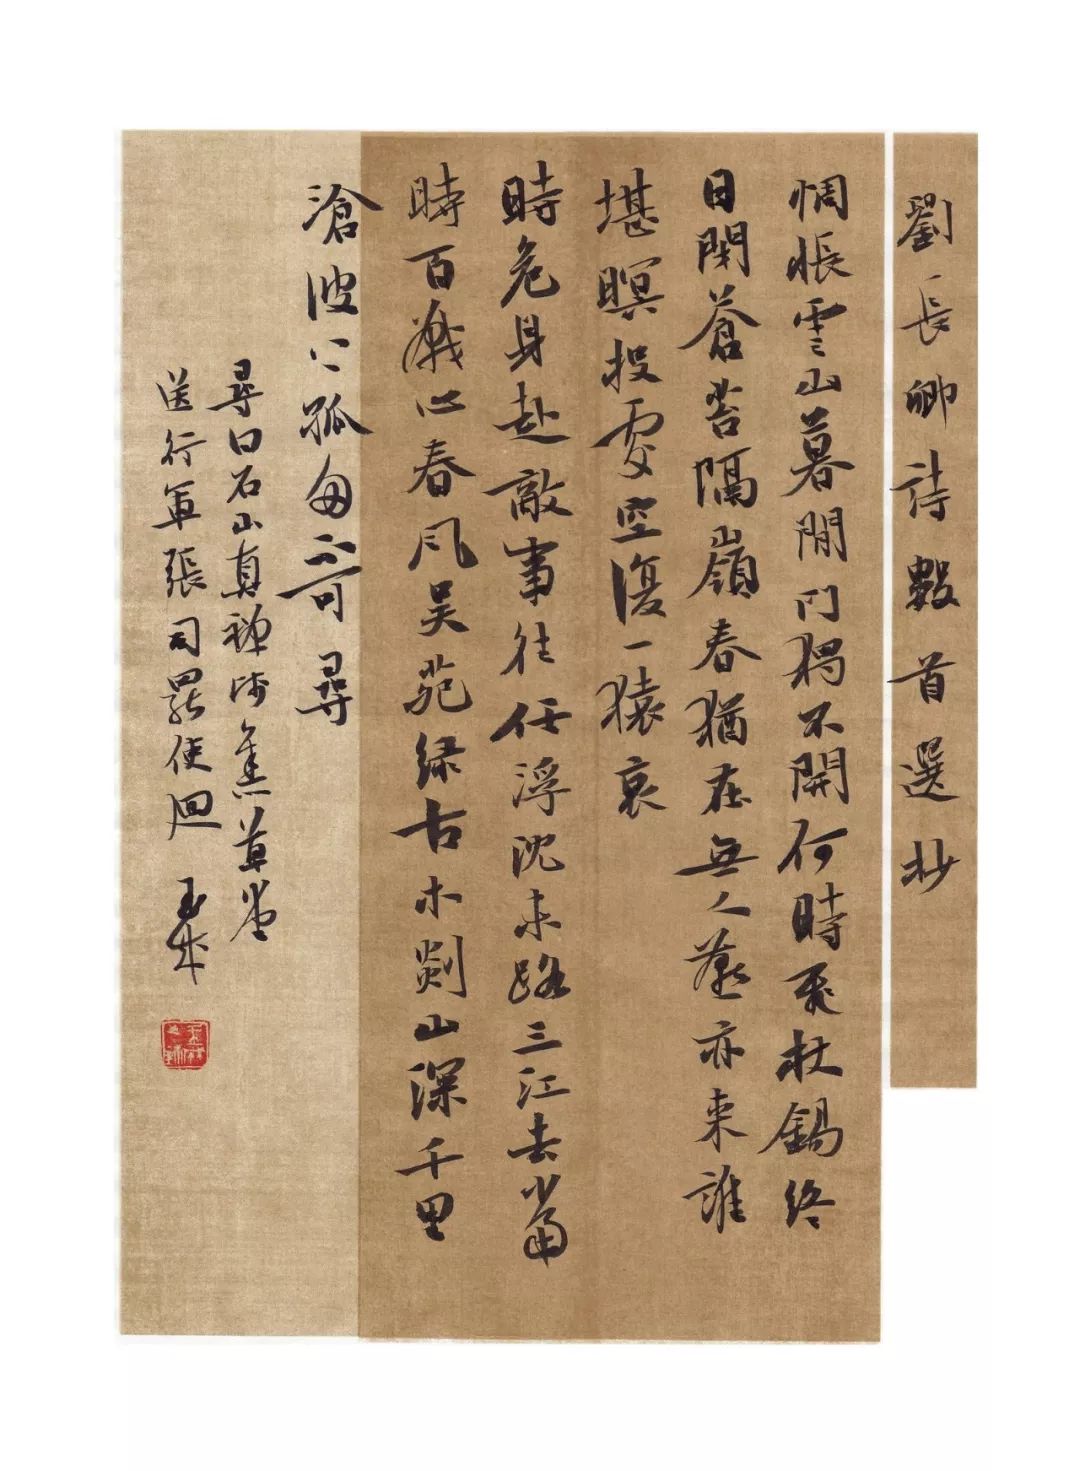 劉長卿詩數首選抄
惆悵雲山暮閒門獨不開何時飛杖錫終
日閉蒼苔隔嶺春猶在無人燕亦來誰
堪暝投處空復一猿哀
時危身赴敵事往任浮沈末路三江去當
時百戰心春風吳苑綠古木剡山深千里
滄波上孤舟不可尋
尋白石山真禪師舊草堂
送行軍張司罷使迴 玉